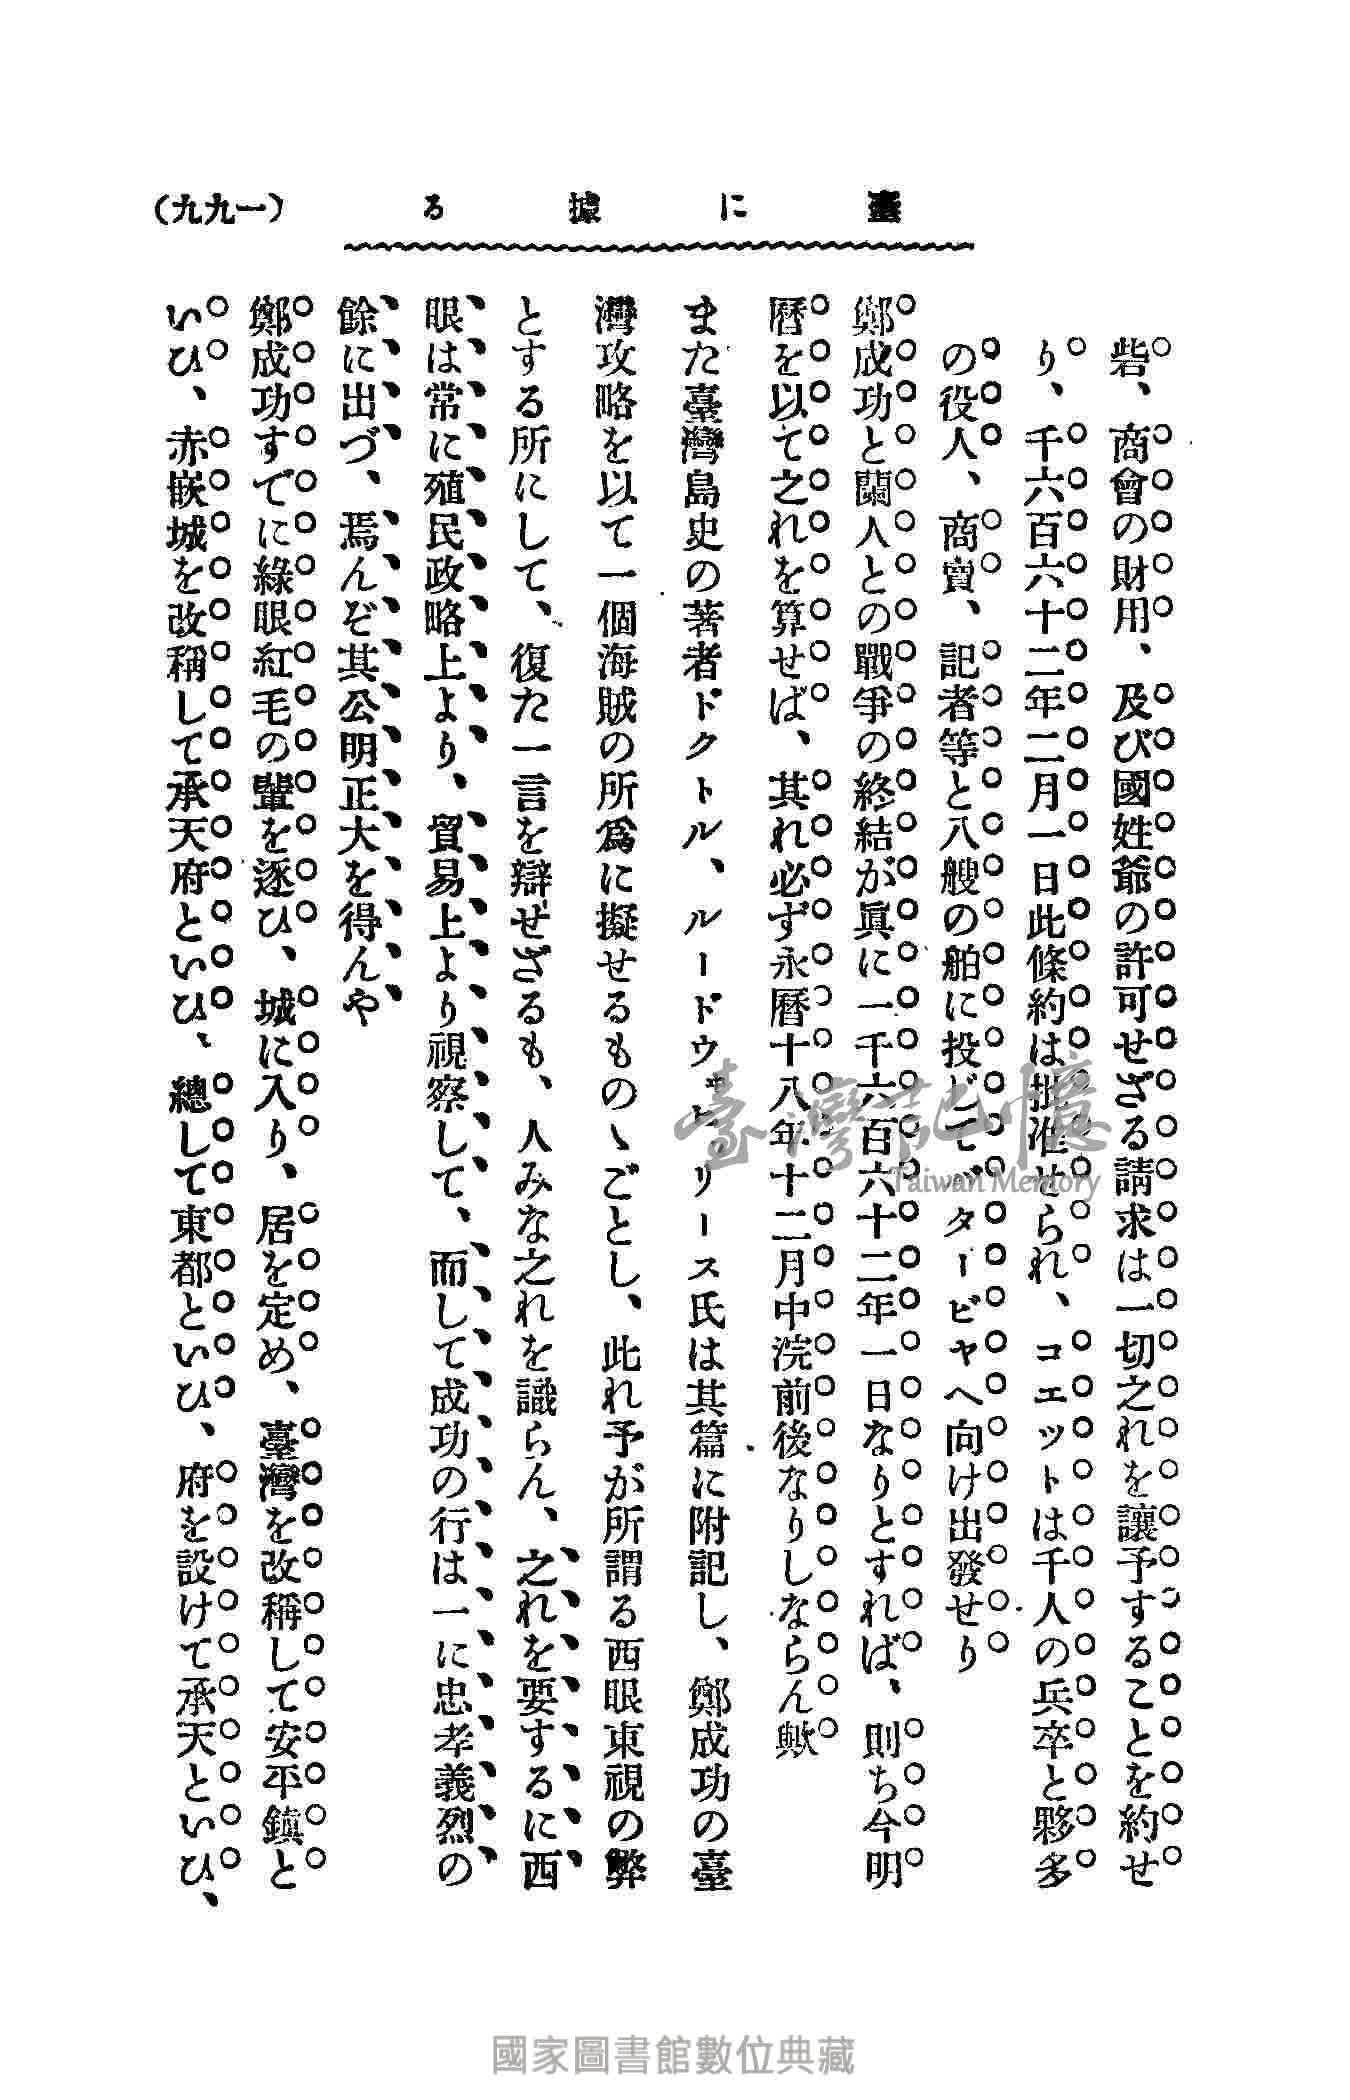 臺に據る
(一九九)
砦、商會の財用、及び國姓爺の許可せざる請求は一切之れを讓予することを約せ
り、千六百六十二年二月一日此條約は批准せられ、コエットは千人の兵卒と夥多
の役人、商賣、記者等と八艘の舶に投じてバタービヤへ向け出發せり
鄭成功と蘭人との戰爭の終結が眞に一千六百六十二年一日なりとすれば、則ち今明
曆を以て之れを算せば、其れ必ず永曆十八年十二月中浣前後なりしならん歟
また臺灣島史の著者ドクトル、ルードウヰヒ、リース氏は其篇に附記し、鄭成功の臺
灣攻略を以て一個海賊の所爲に擬せるものゝごとし、此れ予が所謂る西眼東視の弊
とする所にして、復た一言を辯せざるも、人みな之れを識らん、之れを要するに西
眼は常に殖民政略上より、貿易上より視察して、而して成功の行は一に忠孝義烈の
餘に出づ、焉んぞ其公明正大を得んや
鄭成功すでに綠眼紅毛の輩を逐ひ、城に入り、居を定め、臺灣を改稱して安平鎭と
いひ、赤嵌城を改稱して承天府といひ、總して東都といひ、府を設けて承天といひ、
臺灣記憶
Taiwan Memory
國家圖書館數位典藏